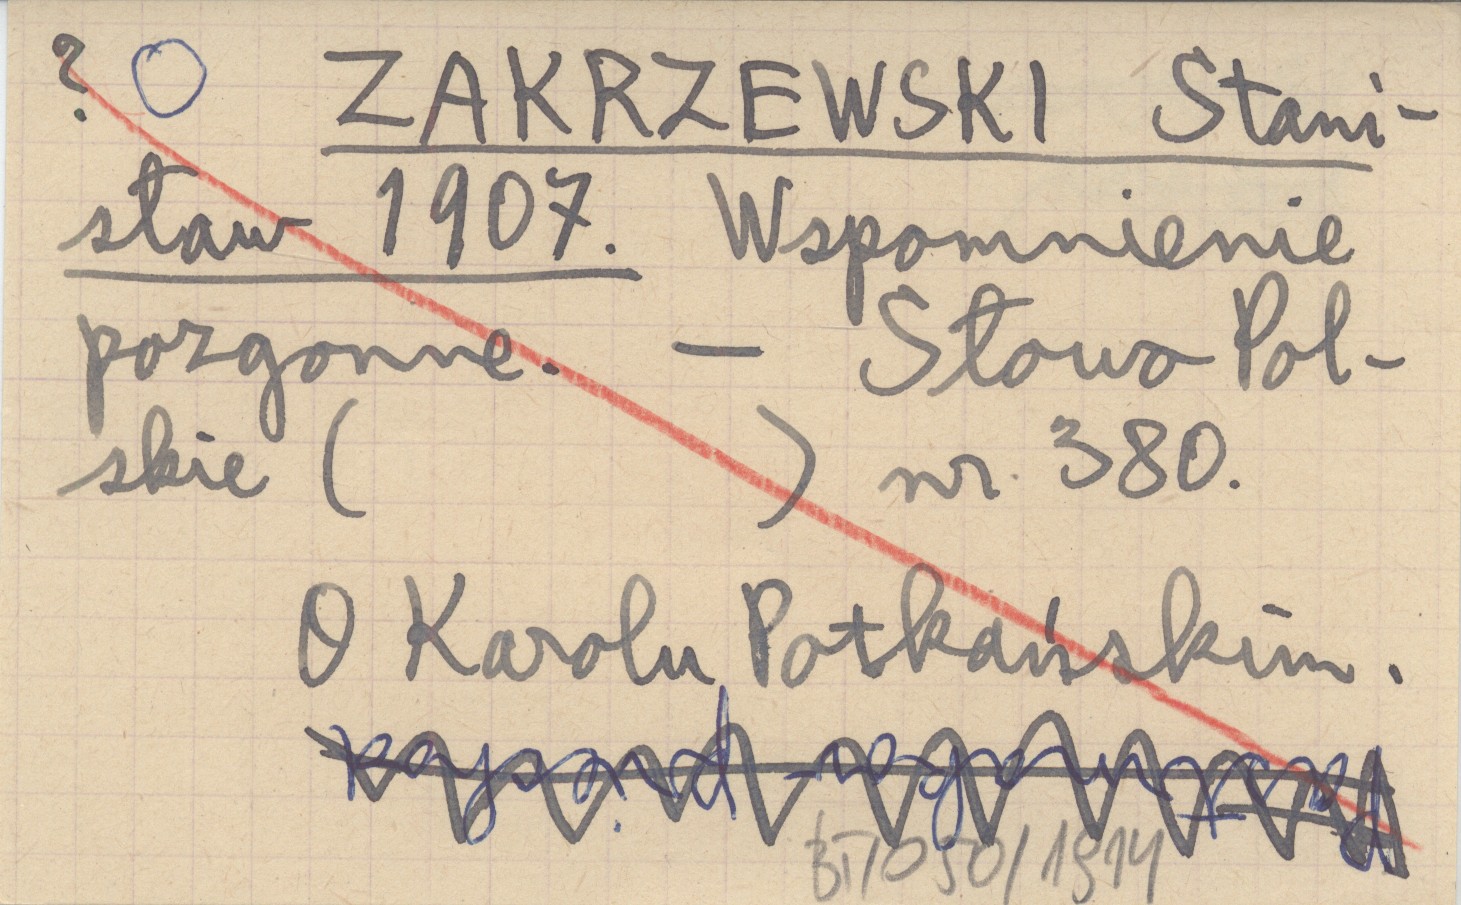 ? ZAKRZEWSKI Stani-
sław 1907. Wspomnienie
pozgonne. — Słowo Pol-
skie ( ) nr. 380.
O Karolu Potkańskim.